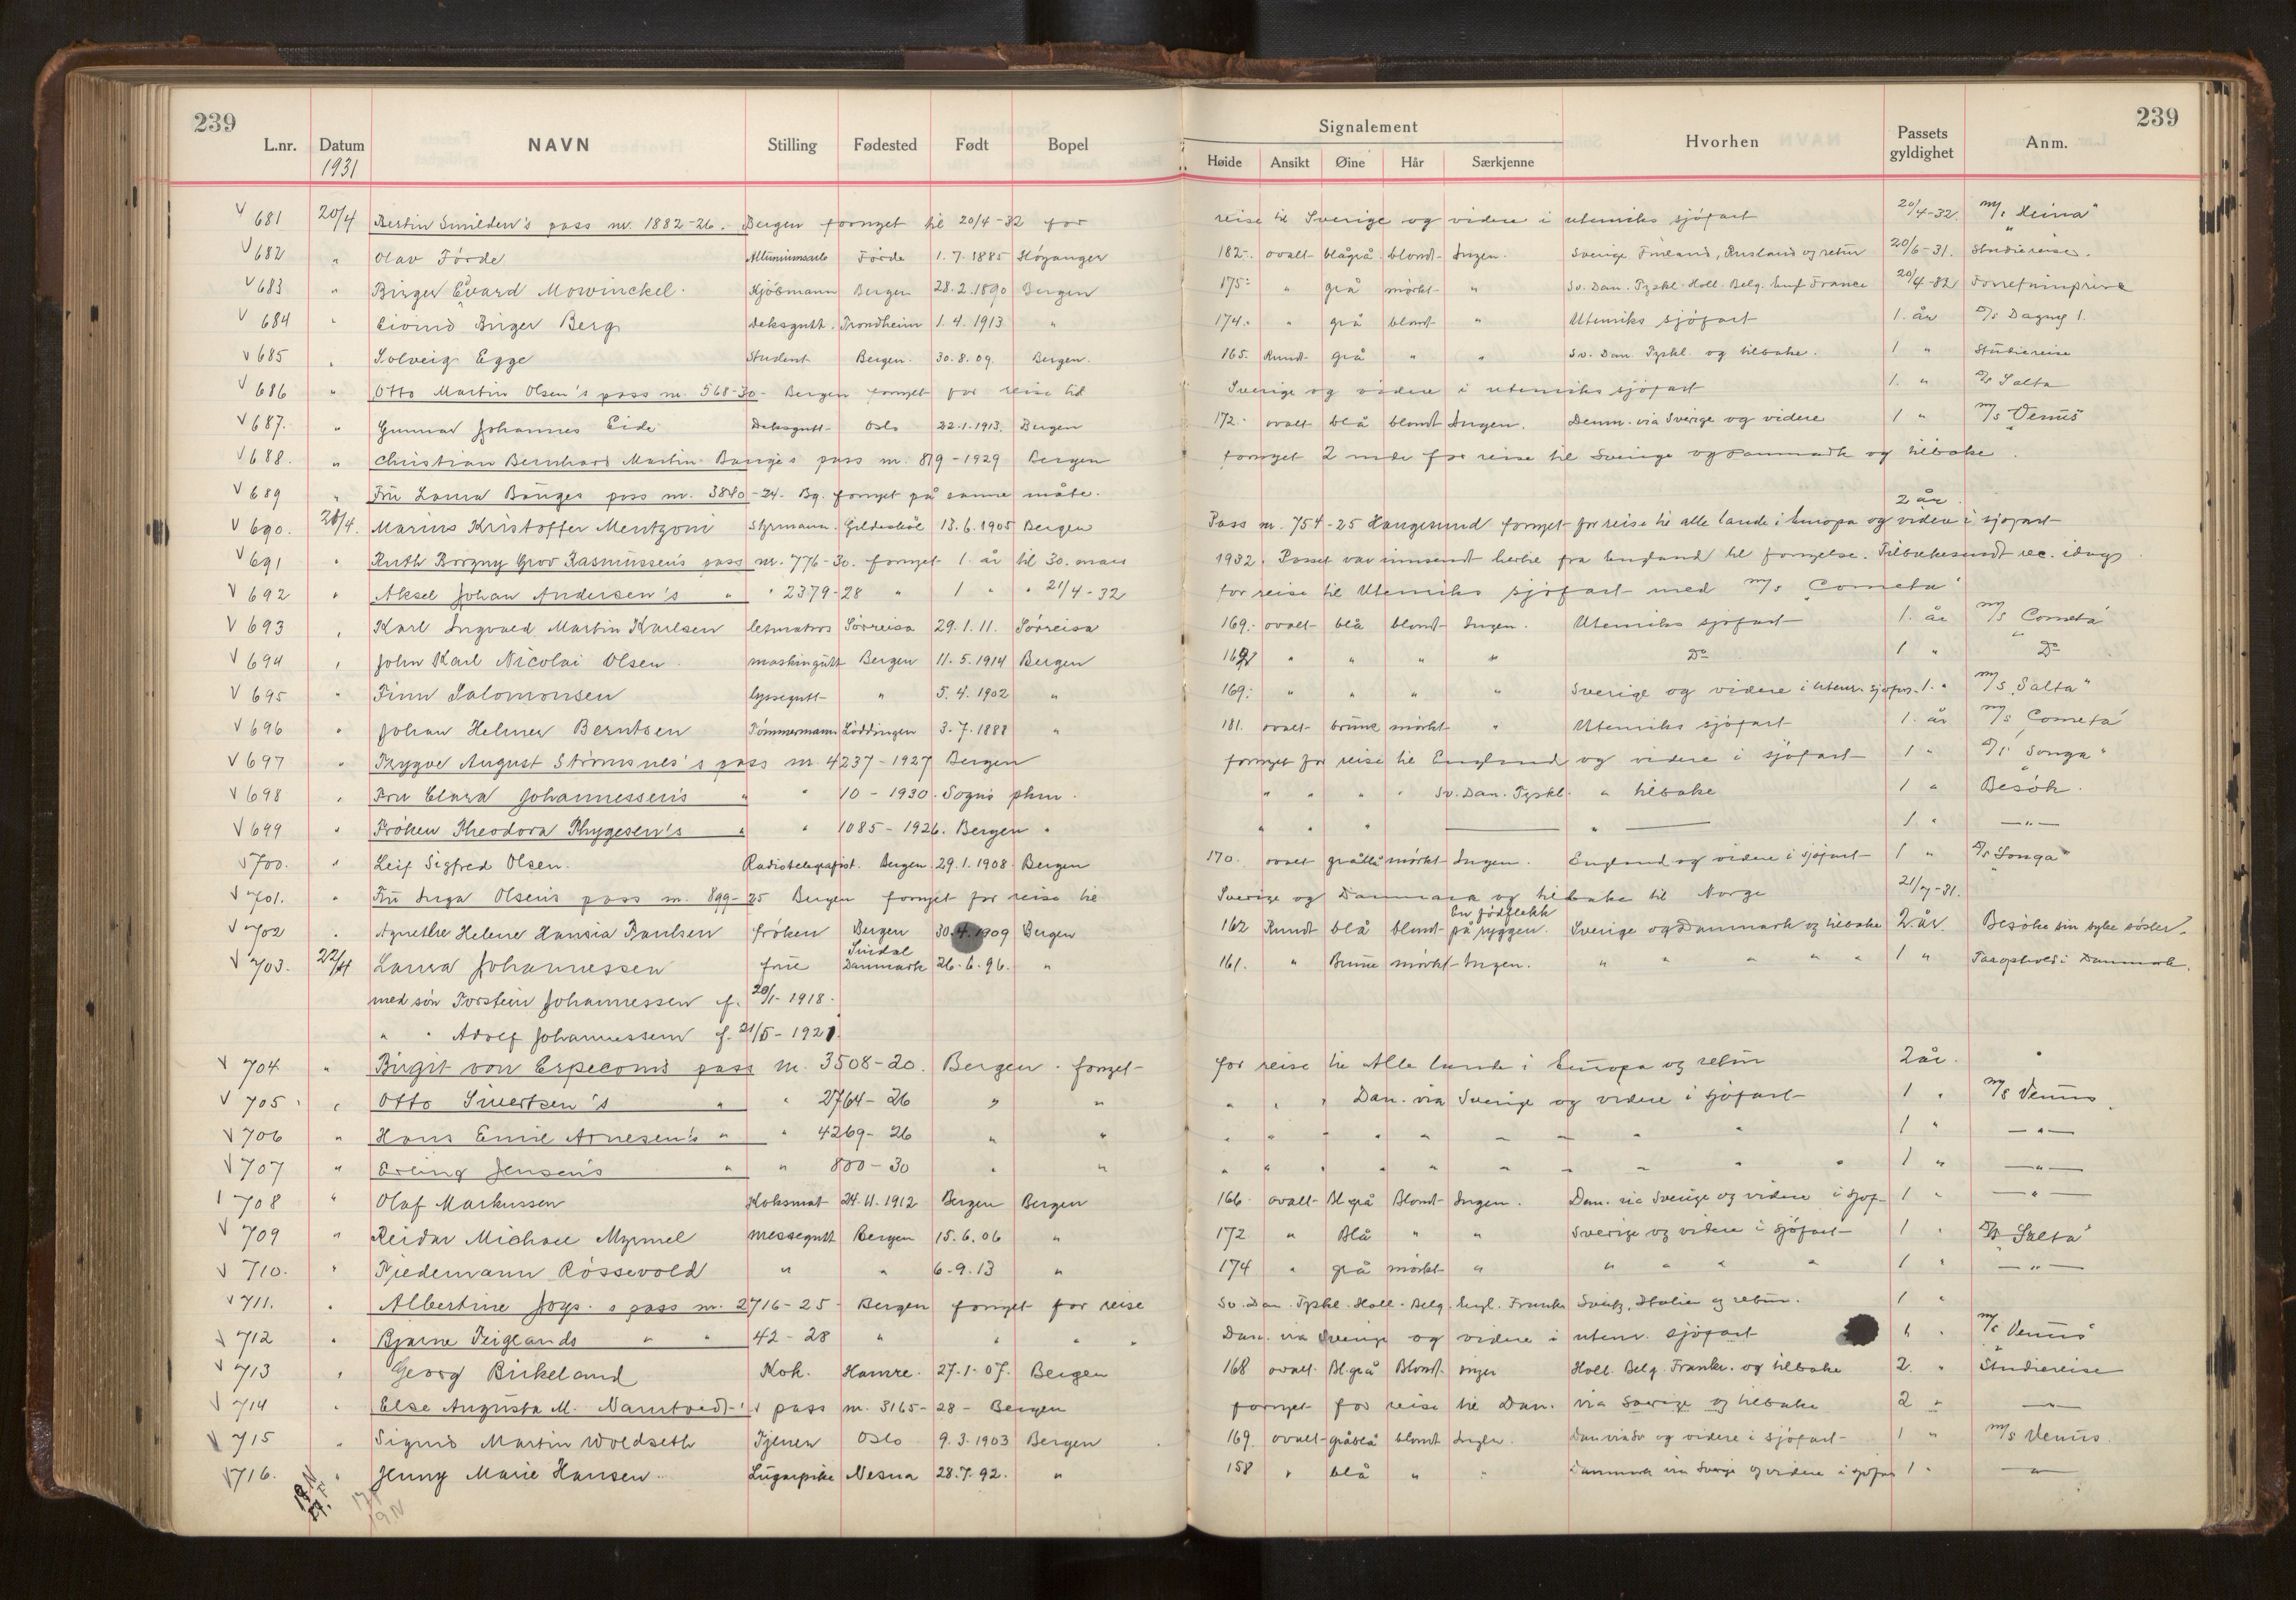 239
239
L.nr. Datum NAVN Stilling Fødested Født Bopel Signalement Hvorhen Passets gyldighet Anm.
1931 Høide Ansikt Øine Hår Særkjenne
V 681 20/4 Bertin Smilden's pass nr. 1882-26. Bergen fornyet til 20/4-32 for reise til Sverige og videre i utenriks sjöfart 20/4-32. m/s "Heina"
V 682 " Olav Förde Förde 1.7.1885 Höyanger 182-. ovalt- blågrå blond- Ingen. Sverige Finland, Rusland og retur 20/6-31. Studiereise.
V 683 " Birger Evard Mowinckel. Kjöbmann Bergen 28.2.1890 Bergen 175- " grå mörkt- " Sv. Dan. Tyskl. Holl. Belg. Engl. France 20/4-32
V 684 " Eivind Birger Berg Deksgutt. Trondheim 1.4.1913 " 174.- " grå blond- " Utenriks sjöfart 1. år D/s Dagny 1.
V 685 " Solveig Egge Student Bergen. 30.8.09. Bergen. 165. Rund- grå " " Sv. Dan. Tyskl. og tilbake. 1 " Studiereise
V 686 " Otto Martin Olsen's pass nr. 568-30- Bergen fornyet for reise til Sverige og videre i utenriks sjöfart 1. " Salta
V 687. " Gunnar Johannes Eide Deksgutt- Oslo 22.1.1913. Bergen 172.- ovalt- blå blond Ingen. Danm. via Sverige og videre 1 " m/s Venus
V 688. " Christian Bernhard Martin Bange's pass nr. 819-1929 Bergen fornyet 2 mdr for reise til Sverige og Danmark og tilbake.
V 689 " Fru Laura Banges pass nr. 3840-24. Bg. fornyet på samme måte.
V 690. 21/4. Marius Kristoffer Mentzoni Styrmann. Gildeskål 13.6.1905 Bergen Pass nr. 754-25 Haugesund fornyet for reise til alle lande i Europa og videre i sjöfart- 2 år.
V 691 " Ruth Borgny Grov Rasmussen's pass nr. 776-30. fornyet 1. år til 30. mars 1932. Passet var innsendt hertil fra England til fornyelse. Tilbakesendt rec. idag
V 692 " Aksel Johan Andersen's " " 2379-28 " 1 " " 21/4-32 for reise til Utenriks sjöfart- med m/s "Cometa"
V 693 " Karl Ingvald Martin Karlsen letmatros Sörreisa 29.1.11. Sörreisa 169.- ovalt- blå blond- Ingen. Utenriks sjöfart 1. år m/s "Cometa"
V 694 " John Karl Nicolai Olsen. maskingutt Bergen 11.5.1914 Bergen " " " " Do 1 " Do
V 695 " Finn Salomonsen byssegutt- " 5.4.1902 " 169.- " " " " Sverige og videre i utenr. sjöfar. 1. " m/s "Salta"
V 696 " Johan Helmer Berntsen Tömmermann Löddingen 3.7.1888 " 181. ovalt- brune mörkt " Utenriks sjöfart 1. år m/s "Cometa"
V 697 " Trygve August Strömsnes's pass nr. 4237-1927 Bergen fornyet for reise til England og videre i sjöfart- 1 " D/s "Songa"
V 698 " Fru Clara Johannessen's " " 10-1930. Sogns phm. " " " " Sv. Dan. Tyskl. " tilbake 1 " Besök.
V 699 " Fröken Theodora Thygesen's " " 1085-1926. Bergen " " " " " 1 " —"—
V 700. " Leif Sigfred Olsen. Radiotelegrafist. Bergen. 29.1.1908. Bergen 170. ovalt gråblå mörkt- Ingen. England og videre i sjöfart- 1 " D/s "Songa"
V 701. " Fru Inga Olsen's pass nr. 899-25 Bergen fornyet for reise til Sverige og Danmark og tilbake til Norge
V 702 " Agnethe Helene Hansia Paulsen fröken Bergen 30.4.1909 Bergen 162 Rundt blå blond- En födflekk på ryggen. Sverige og Danmark og tilbake 2 år. Besöke sin syke söster.
V 703. 22/4 Laura Johannessen frue Sindal Danmark 26.6.96. " 161. " Brune mörkt- Ingen. " " " " " 1 "
med sön Torstein Johannessen f. 20/1-1918.
" " Adolf Johannessen f. 21/5-1921.
V 704 " Birgit von pass nr. 3508-20. Bergen. fornyet- for reise til Alle lande i Europa og retur 2 år. "
V 705. " Otto Sivertsen's " " 2764-26 " " " " " Dan. via Sverige og videre i sjöfart- 1 " m/s Venus
V 706 " Hans Emil Arnesen's " " 4269-26 " " " " " " " " " " " 1 " —"—
V 707 " Erling Jensen's " " 800-30 " " " " " " " " " " " " 1 " —"—
1 708 " Olaf Markussen Koksmat 24.11.1912 Bergen Bergen 166 ovalt- Bl.grå Blond- Ingen. Dan. via Sverige og videre i sjöf- 1 " —"—
V 709 " Reidar Michael Myrmel messegutt Bergen 15.6.06 " 172 " Blå " " Sverige og videre i sjöfart- 1 " D/s "Salta"
V 710. " Tjedemann Rössevold " " 6-9.13 " 174 " grå mörkt " " " " " 1 " —"—
V 711. " Albertine s pass nr. 2716-25- Bergen fornyet for reise Sv. Dan. Tyskl. Holl. Belg. Engl. Frankr. Sveitz, Italia og retur. 1 "
V 712 " Bjarne Teiglands " " 42-28 " " " " Dan. via Sverige og videre i utenr. sjöfart " m/s Venus
V 713 " Georg Birkeland Kok. Hamre. 27.1-07. Bergen 168 ovalt- Bl.grå Blond- ingen Holl. Belg. Frankr. og tilbake 2. " Studiereise
V 714 " Else Augusta M. Namtvedt's pass nr. 3165-28- Bergen fornyet for reise til Dan. via Sverige og tilbake 2 " —"—
V 715 " Sigurd Martin Woldseth Tjener Oslo 9.3.1903 Bergen 169. ovalt- gråblå blond Ingen. Dan via Sv og videre i sjöfart- 1 " m/s Venus.
V 716. " Jenny Marie Hansen. Lugarpike Nesna 28.7.92. " 158 " blå " " Danmark via Sverige og videre i sjöfar 1. —"—